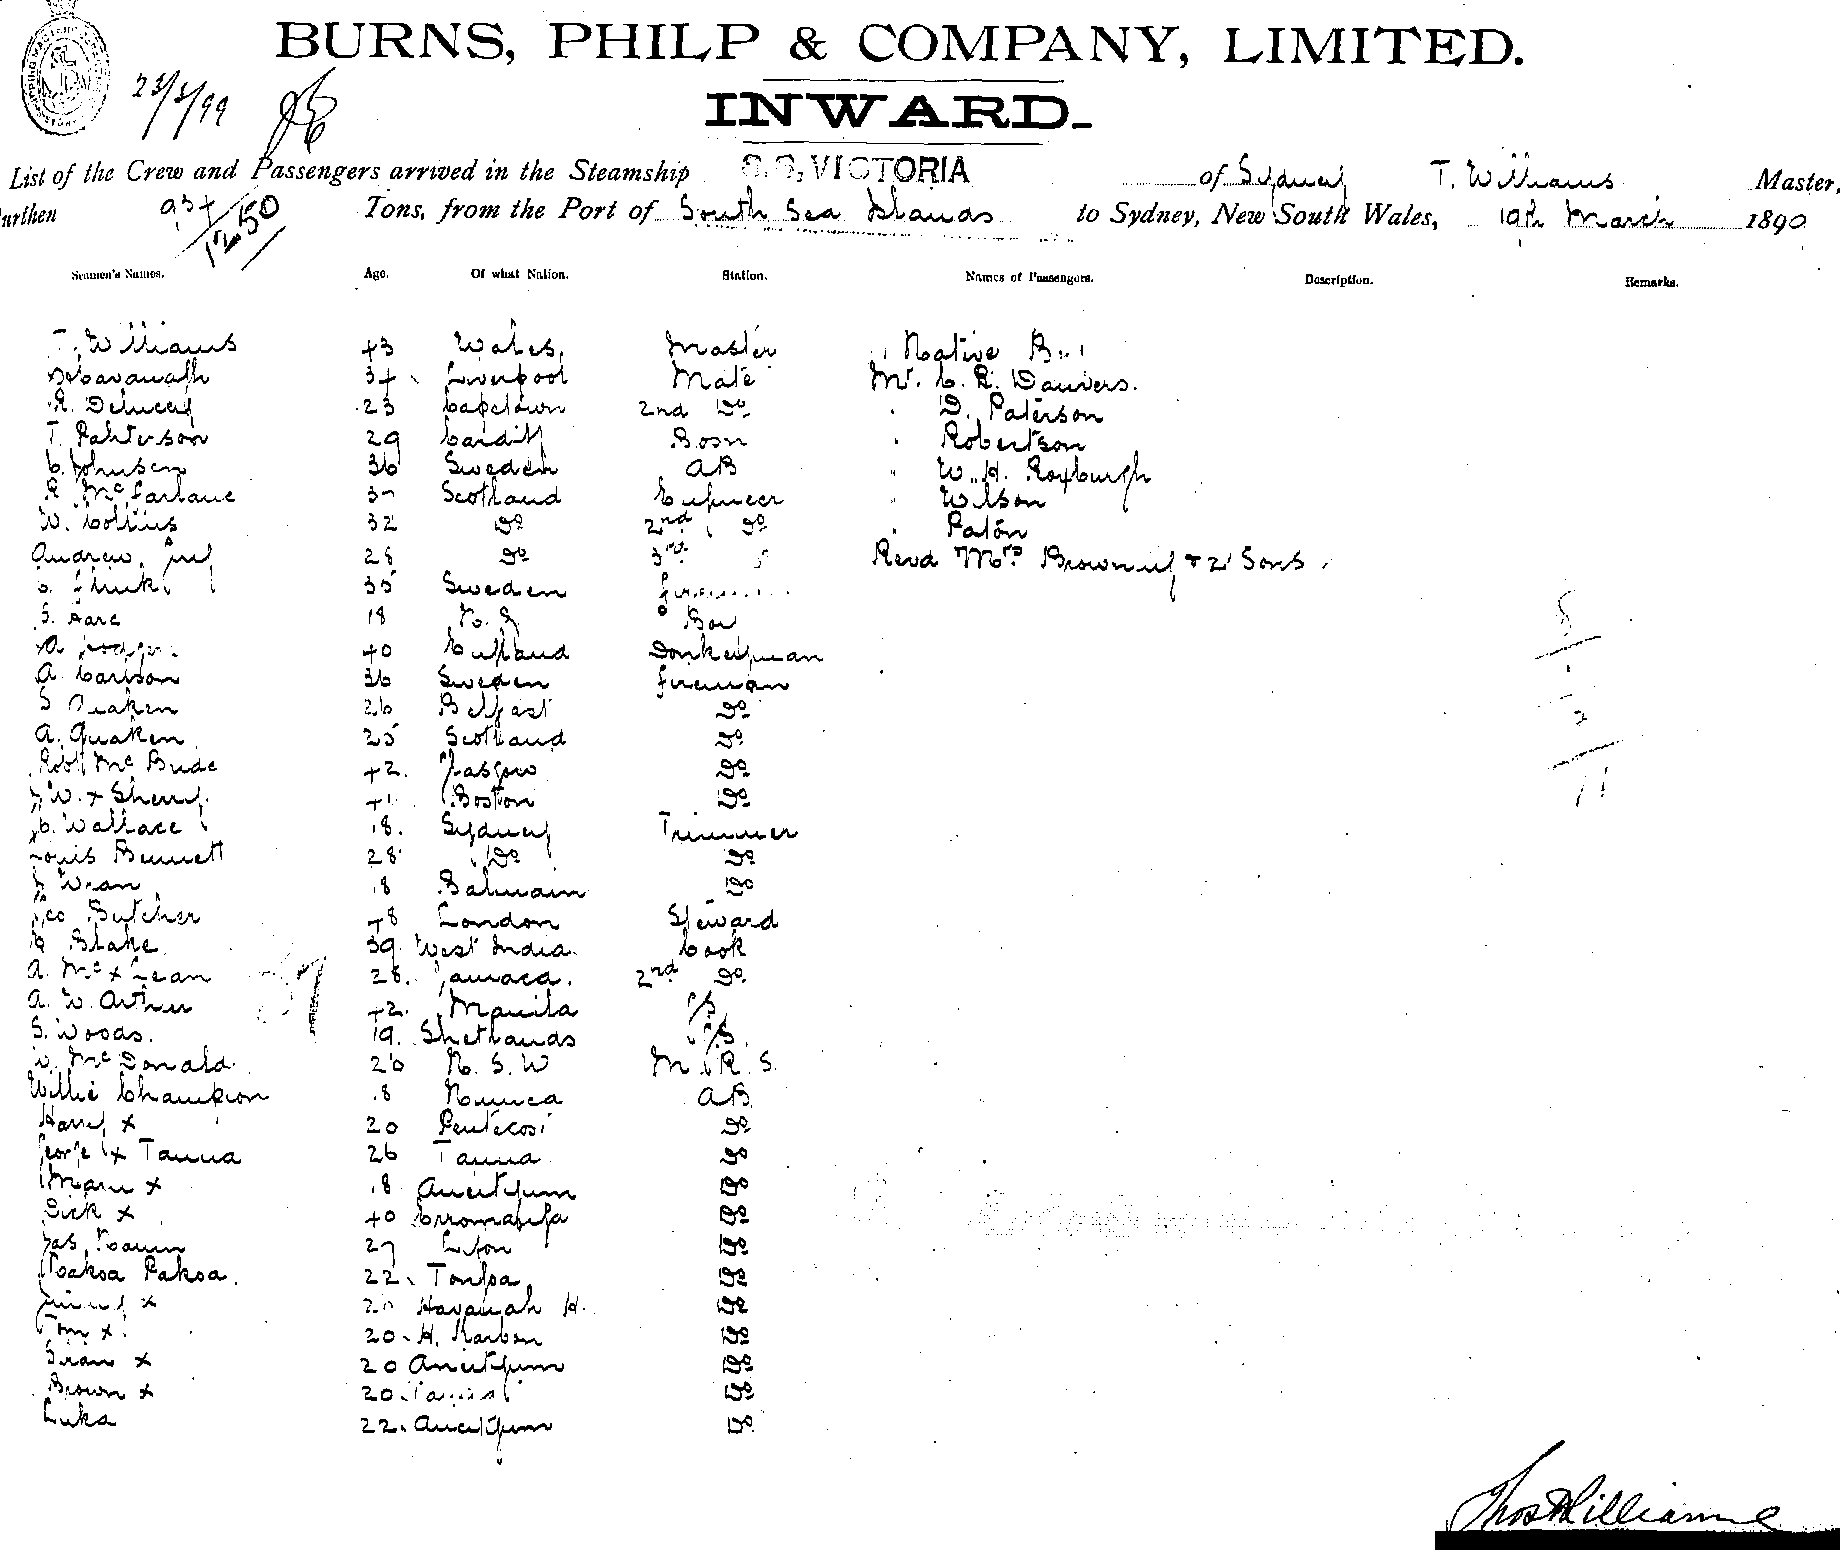 BURNS, PHILP & COMPANY, LIMITED.
23/3/99
INWARD.
List of the Crew and Passengers arrived in the Steamship S.S. VICTORIA of Sydney T. Williams Master,
Burthen 934 1250 Tons, from the Port of South Sea Islands to Sydney, New South Wales, 19th March 1890
Seamen's Names. Age. Of what Nation. Station. Names of Passengers. Description. Remarks.
T. Williams 43 Wales, Master Native
Cavanagh 34 Liverpool Mate Mr. C. R. Danvers.
R. Delucey 23 Capetown 2nd Do D. Paterson
T. Patterson 29 Cardiff Bosn Robertson
C. Johnsen 36 Sweden AB W. H. Roxburgh
R McFarlane 37 Scotland Engineer Wilson
W. Collins 32 Do 2nd Do Paton
Andrew 28 Do 3rd Revd Mrs Brown & 2 Sons
35 Sweden
S. 18
A 40 England Donkeyman
A. Carlson 36 Sweden fireman
S 26 Belfast Do
A. Quaken 25 Scotland Do
Robt McBride 42. Glasgow Do
W. x Sherry 41 Boston Do
C. Wallace 18. Sydney Trimmer
Louis Bennett 28 Do Do
18 Balmain Do
Geo Butcher 48 London Steward
Blake 39 West India Cook
A. Mc x Lean 28. Jamaca. 2nd Do
A. W. Arthur 42. Manila P/S
S. Woods. 19. Shetlands P/S.
W. McDonald 26 N. S. W M. R. S.
Willie Champion 18 Noumea AB
Harry x 20 Pentecost Do
George x Tanna 26 Tanna Do
x 18 Aneityum Do
Dick x 40 Erromanga Do
Jas. 27 Lifou Do
Paksa. 22. Tongoa Do
x 20 Havanah H. Do
Tom x 20. H. Harbor Do
x 20 Aneityum Do
Brown x 20. Do
Luka 22. Aneityum Do
8
1
2
11
Thos Williams